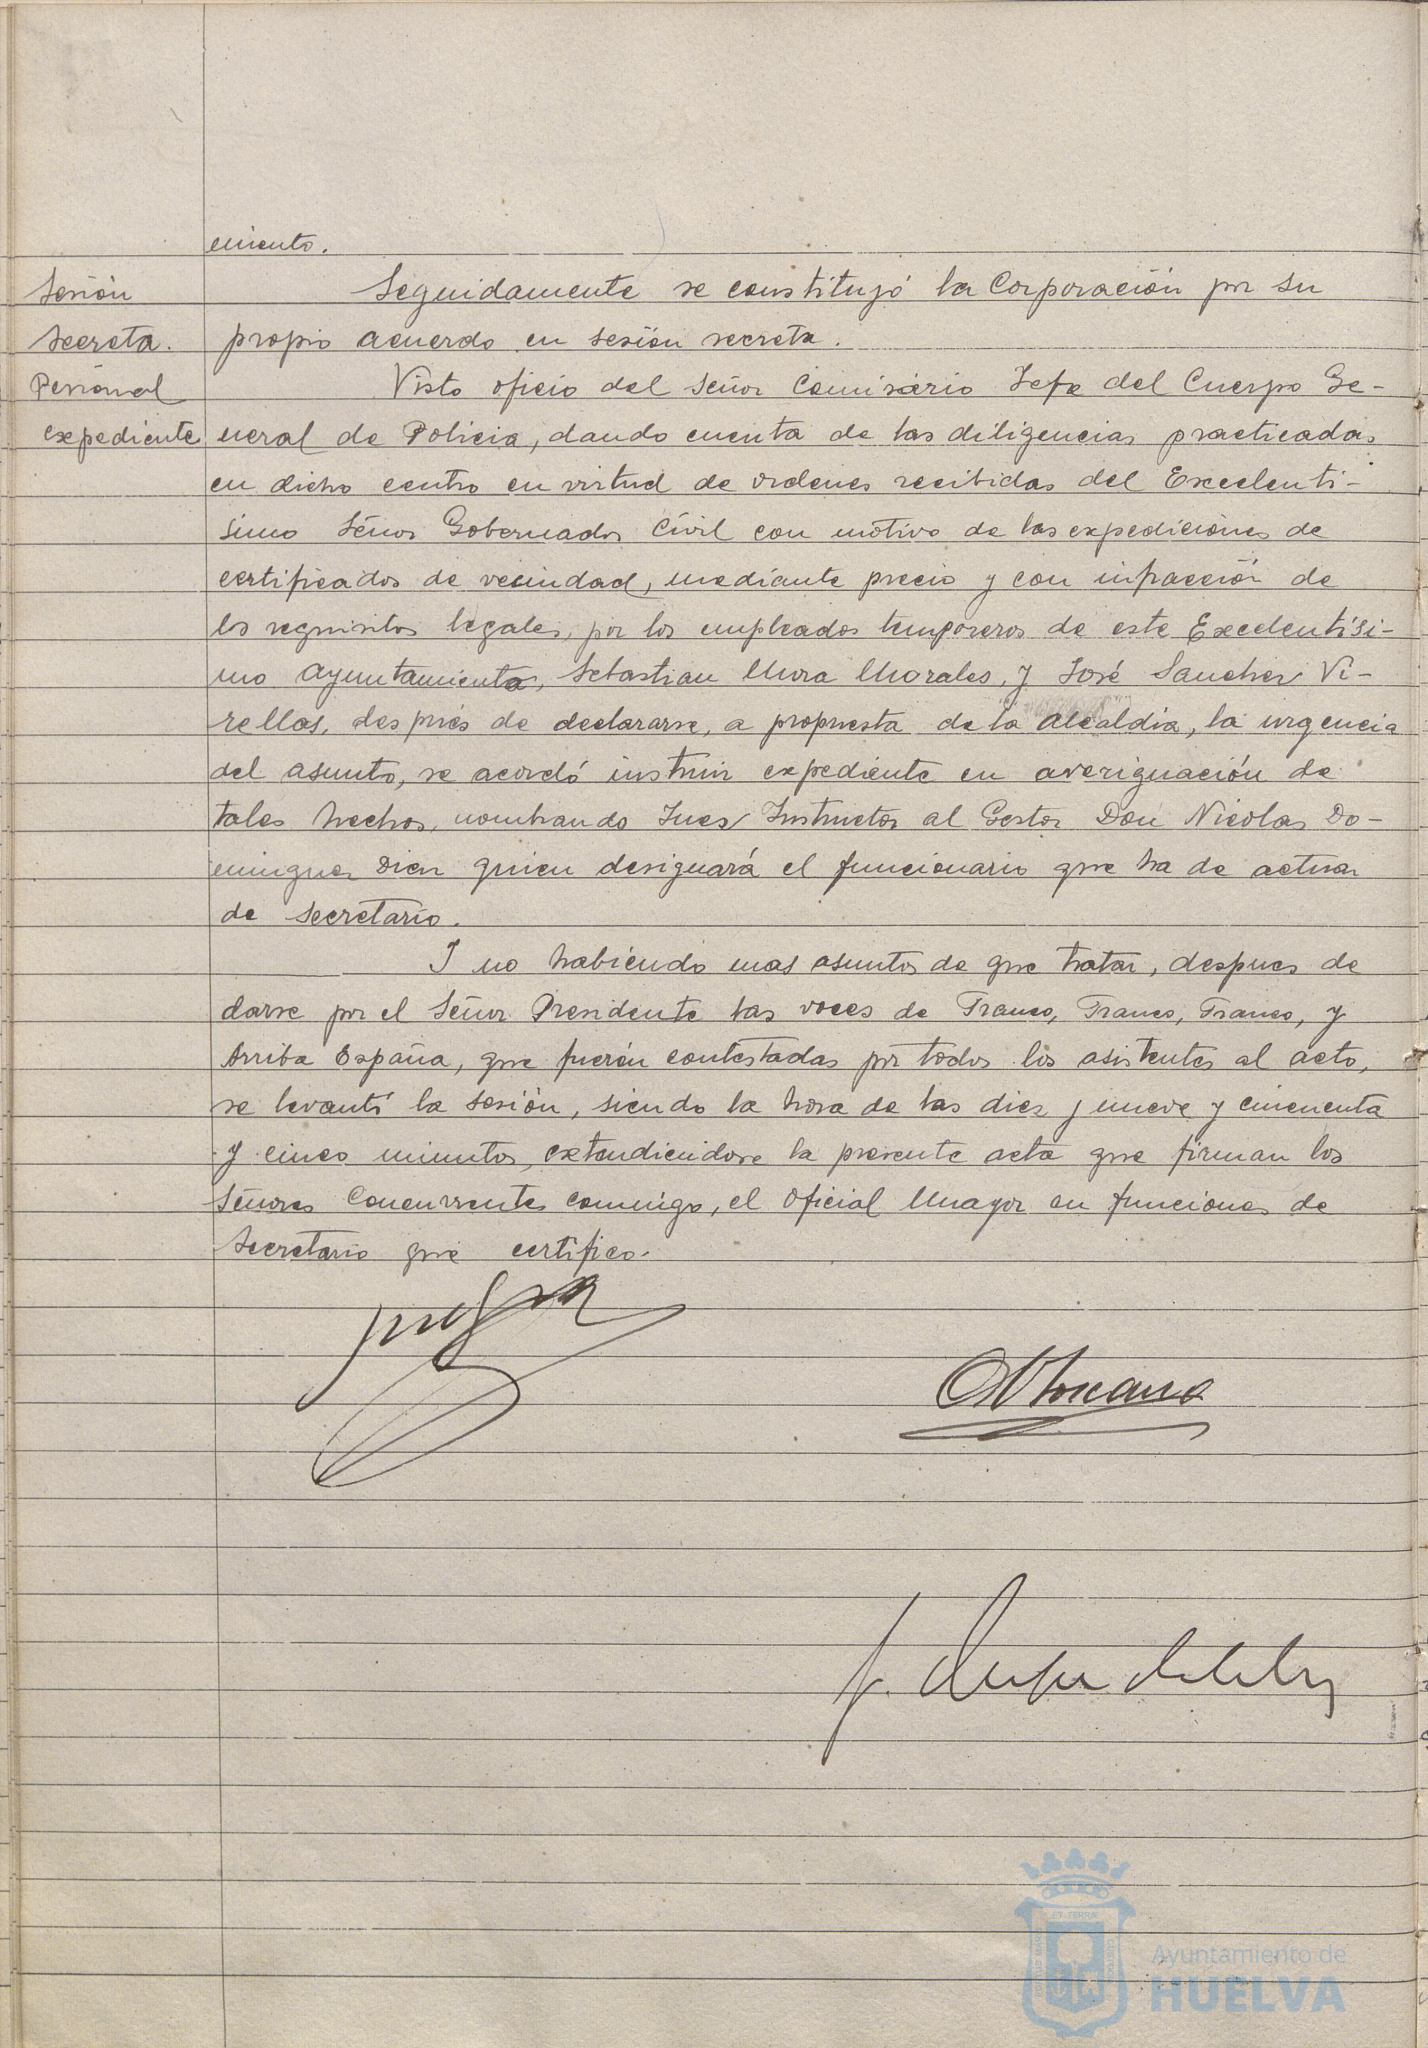 miento.
Sesión
Secreta.
Seguidamente se constituyó la Corporación por su
propio acuerdo en sesión secreta.
Personal
expediente
Visto oficio del Señor Comisario Jefe del Cuerpo Ge-
neral de Policia, dando cuenta de las diligencias practicadas
en dicho centro en virtud de ordenes recibidas del Excelenti-
simo Señor Gobernador Civil con motivo de las expediciones de
certificados de vecindad, mediante precio y con infracción de
los requisitos legales, por los empleados temporeros de este Excelentisi-
mo Ayuntamiento, Sebastian Mora Morales, y José Sanchez Vi-
rellas, despues de declararse, a propuesta de la alcaldia, la urgencia
del asunto, se acordó instruir expediente en averiguación de
tales hechos, nombrando Juez Instructor al Gestor Don Nicolas Do-
minguez Diez quien designará el funcionario que ha de actuar
de Secretario.
Y no habiendo mas asuntos de que tratar, despues de
darse por el Señor Presidente las voces de Franco, Franco, Franco, y
Arriba España, que fueron contestadas por todos los asistentes al acto,
se levantó la sesión, siendo la hora de las diez y nueve y cincuenta
y cinco minutos, extendiendose la presente acta que firman los
Señores Concurrentes conmigo, el Oficial Mayor en funciones de
Secretario que certifico.
ET TERRÆ
Ayuntamiento de
HUELVA